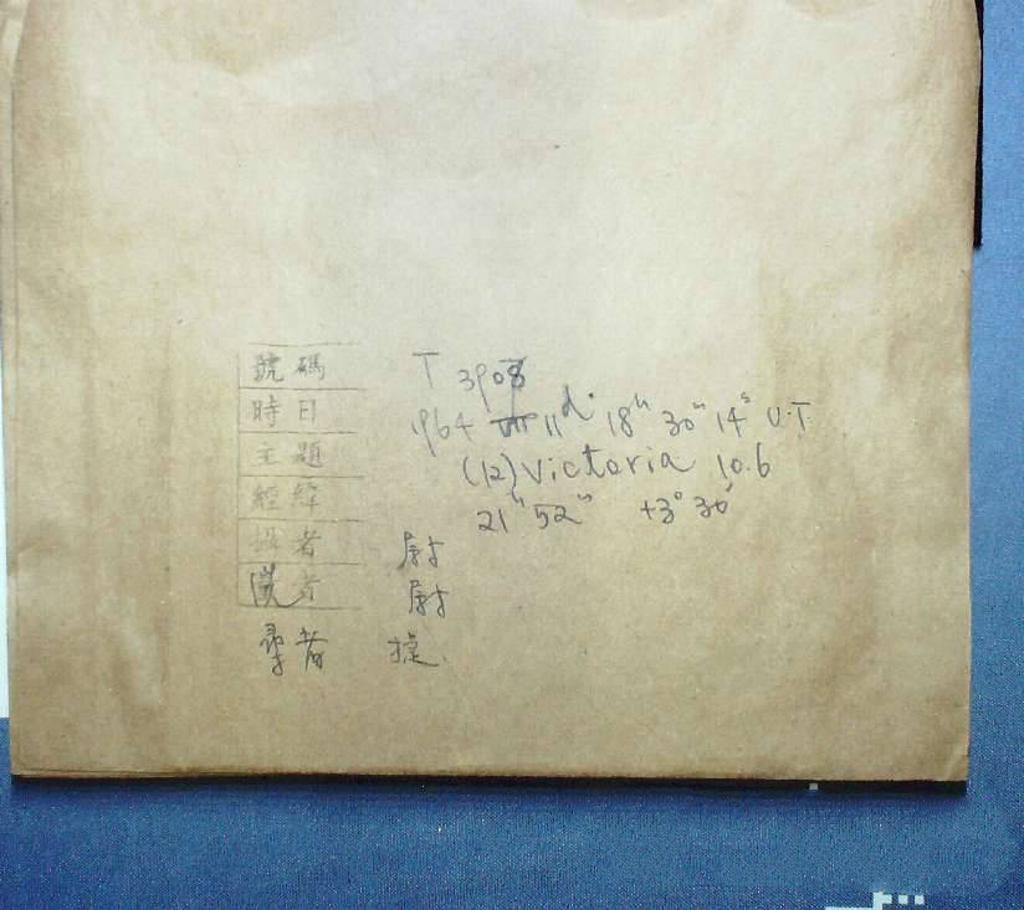 號碼 T 3908
時日 1964 VIII 11d. 18h 30m 14s U.T.
主題 (12) Victoria 10.6
經緯 21h 52m +3° 36′
者 尉
者 尉
尋者 捷.